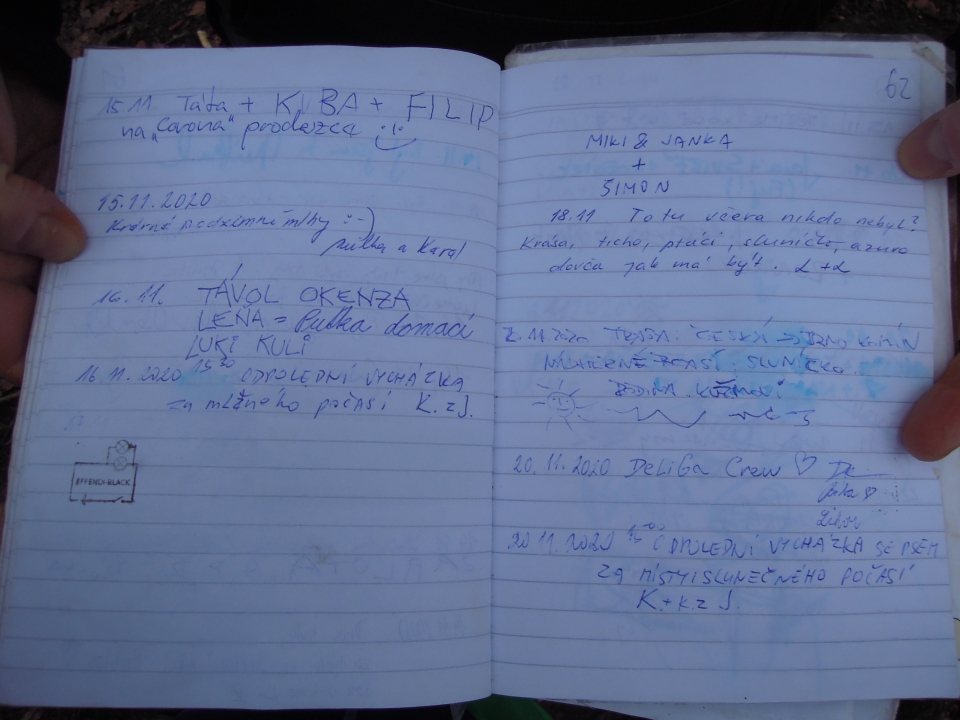 15.11 Táta + KUBA + FILIP
na „Corona" procházce
15.11.2020
Krásné podzimní mlhy :-)
a Karel
16.11. TÁVOL OKENZA
LENA = Pulka domací
LUKI KULI
16.11.2020 15³⁰ ODPOLEDNÍ VYCHÁZKA
za mlžného počasí K. z J.
EFFENDI-BLACK
29
MIKI & JANKA
+
ŠIMON
18.11 To tu včera nikdo nebyl?
Krása, ticho, ptáci, sluníčko, azuro
dovča jak má být. L+L
TRASA: ČESKÁ →
NÁDHERNÉ POČASÍ, SLUNÍČKO
RODINA
20.11.2020 DeLiGa Crew ♡
Libor
20.11.2020 ODPOLEDNÍ VYCHÁZKA SE PSEM
ZA MÍSTY SLUNEČNÉHO POČASÍ
K. + K. z J.